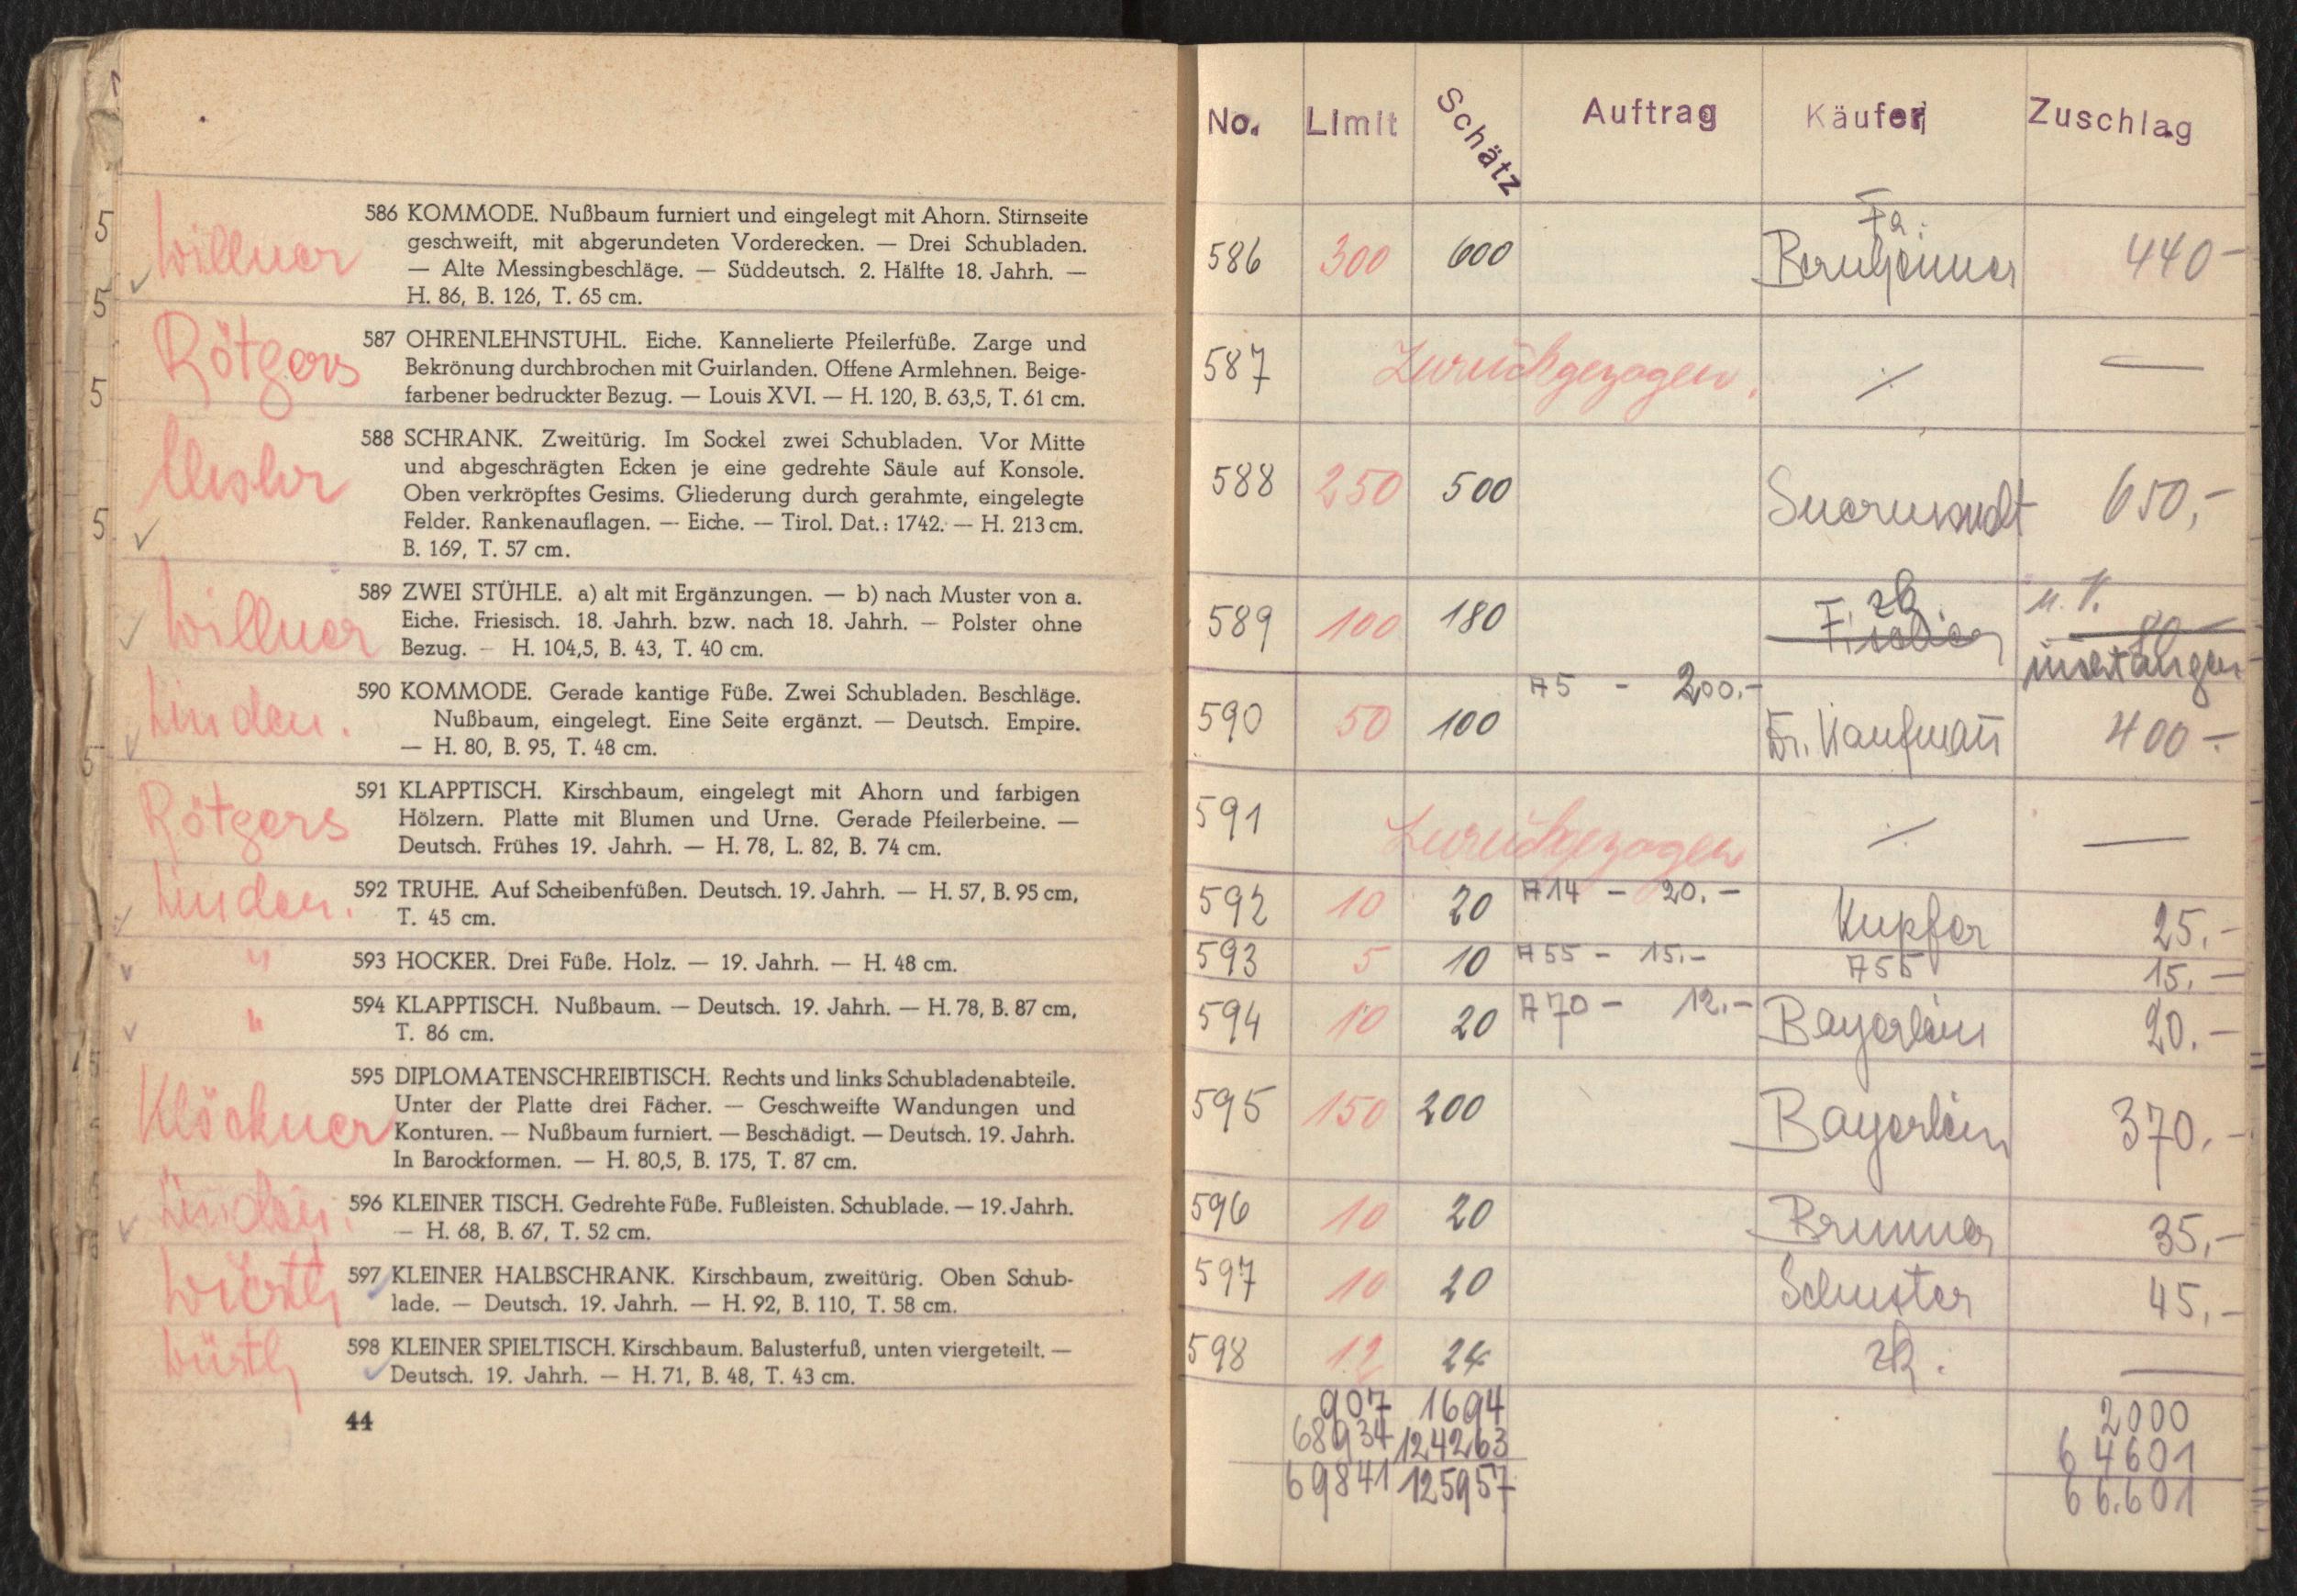 Willner
586 KOMMODE. Nußbaum furniert und eingelegt mit Ahorn. Stirnseite
geschweift, mit abgerundeten Vorderecken. — Drei Schubladen.
— Alte Messingbeschläge. — Süddeutsch. 2. Hälfte 18. Jahrh. —
H. 86, B. 126, T. 65 cm.
Rötgers
587 OHRENLEHNSTUHL. Eiche. Kannelierte Pfeilerfüße. Zarge und
Bekrönung durchbrochen mit Guirlanden. Offene Armlehnen. Beige-
farbener bedruckter Bezug. — Louis XVI. — H. 120, B. 63,5, T. 61 cm.
588 SCHRANK. Zweitürig. Im Sockel zwei Schubladen. Vor Mitte
und abgeschrägten Ecken je eine gedrehte Säule auf Konsole.
Oben verkröpftes Gesims. Gliederung durch gerahmte, eingelegte
Felder. Rankenauflagen. — Eiche. — Tirol. Dat.: 1742. — H. 213 cm.
B. 169, T. 57 cm.
Willner
589 ZWEI STÜHLE. a) alt mit Ergänzungen. — b) nach Muster von a.
Eiche. Friesisch. 18. Jahrh. bzw. nach 18. Jahrh. — Polster ohne
Bezug. — H. 104,5, B. 43, T. 40 cm.
Linden.
590 KOMMODE. Gerade kantige Füße. Zwei Schubladen. Beschläge.
Nußbaum, eingelegt. Eine Seite ergänzt. — Deutsch. Empire.
— H. 80, B. 95, T. 48 cm.
Rötgers
591 KLAPPTISCH. Kirschbaum, eingelegt mit Ahorn und farbigen
Hölzern. Platte mit Blumen und Urne. Gerade Pfeilerbeine. —
Deutsch. Frühes 19. Jahrh. — H. 78, L. 82, B. 74 cm.
Linden.
592 TRUHE. Auf Scheibenfüßen. Deutsch. 19. Jahrh. — H. 57, B. 95 cm,
T. 45 cm.
"
593 HOCKER. Drei Füße. Holz. — 19. Jahrh. — H. 48 cm.
"
594 KLAPPTISCH. Nußbaum. — Deutsch. 19. Jahrh. — H. 78, B. 87 cm,
T. 86 cm.
Klöckner
595 DIPLOMATENSCHREIBTISCH. Rechts und links Schubladenabteile.
Unter der Platte drei Fächer. — Geschweifte Wandungen und
Konturen. — Nußbaum furniert. — Beschädigt. — Deutsch. 19. Jahrh.
In Barockformen. — H. 80,5, B. 175, T. 87 cm.
Linden.
596 KLEINER TISCH. Gedrehte Füße. Fußleisten. Schublade. — 19. Jahrh.
— H. 68, B. 67, T. 52 cm.
Würth
597 KLEINER HALBSCHRANK. Kirschbaum, zweitürig. Oben Schub-
lade. — Deutsch. 19. Jahrh. — H. 92, B. 110, T. 58 cm.
Würth
598 KLEINER SPIELTISCH. Kirschbaum. Balusterfuß, unten viergeteilt. —
Deutsch. 19. Jahrh. — H. 71, B. 48, T. 43 cm.
44
No. Limit Schätz Auftrag Käufer Zuschlag
586 300 600 Fa. Bernheimer 440-
587 Zurückgezogen. ⁒ —
588 250 500 Suermondt 650,-
589 100 180 Fischer zk u. V. 80
590 50 100 A5 - 200.- Dr. Kaufmañ 400 -
591 Zurückgezogen ⁒ —
592 10 20 A14 - 20.- Kupfer 25.-
593 5 10 A55 - 15.- A55 15.-
594 10 20 A70 - 12.- Bayerlein 20.-
595 150 200 Bayerlein 370.-
596 10 20 Brunner 35,-
597 10 20 Schuster 45,-
598 12 24 zk. —
907 1694 2000
68934 124263 64601
69841 125957 66.601